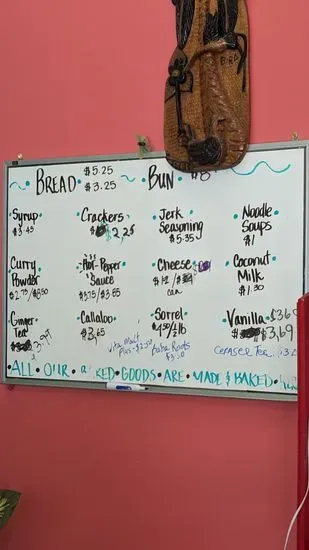 BREAD $5.25 $3.25 BUN
Syrup $3.45
Crackers $ 2.25
Jerk Seasoning $5.35
Noodle Soups $1
Curry Powder $2.75/$6.50
Hot-Pepper Sauce $3.75/$3.85
Cheese $12/$ can
Coconut Milk $1.30
Ginger Tea
Callaloo $3.65
Sorrel
Vanilla $3.69
Vita Malt Plus-$2.50
Baba Roots
Cerasee Tea
ALL OUR KED GOODS ARE MADE & BAKED